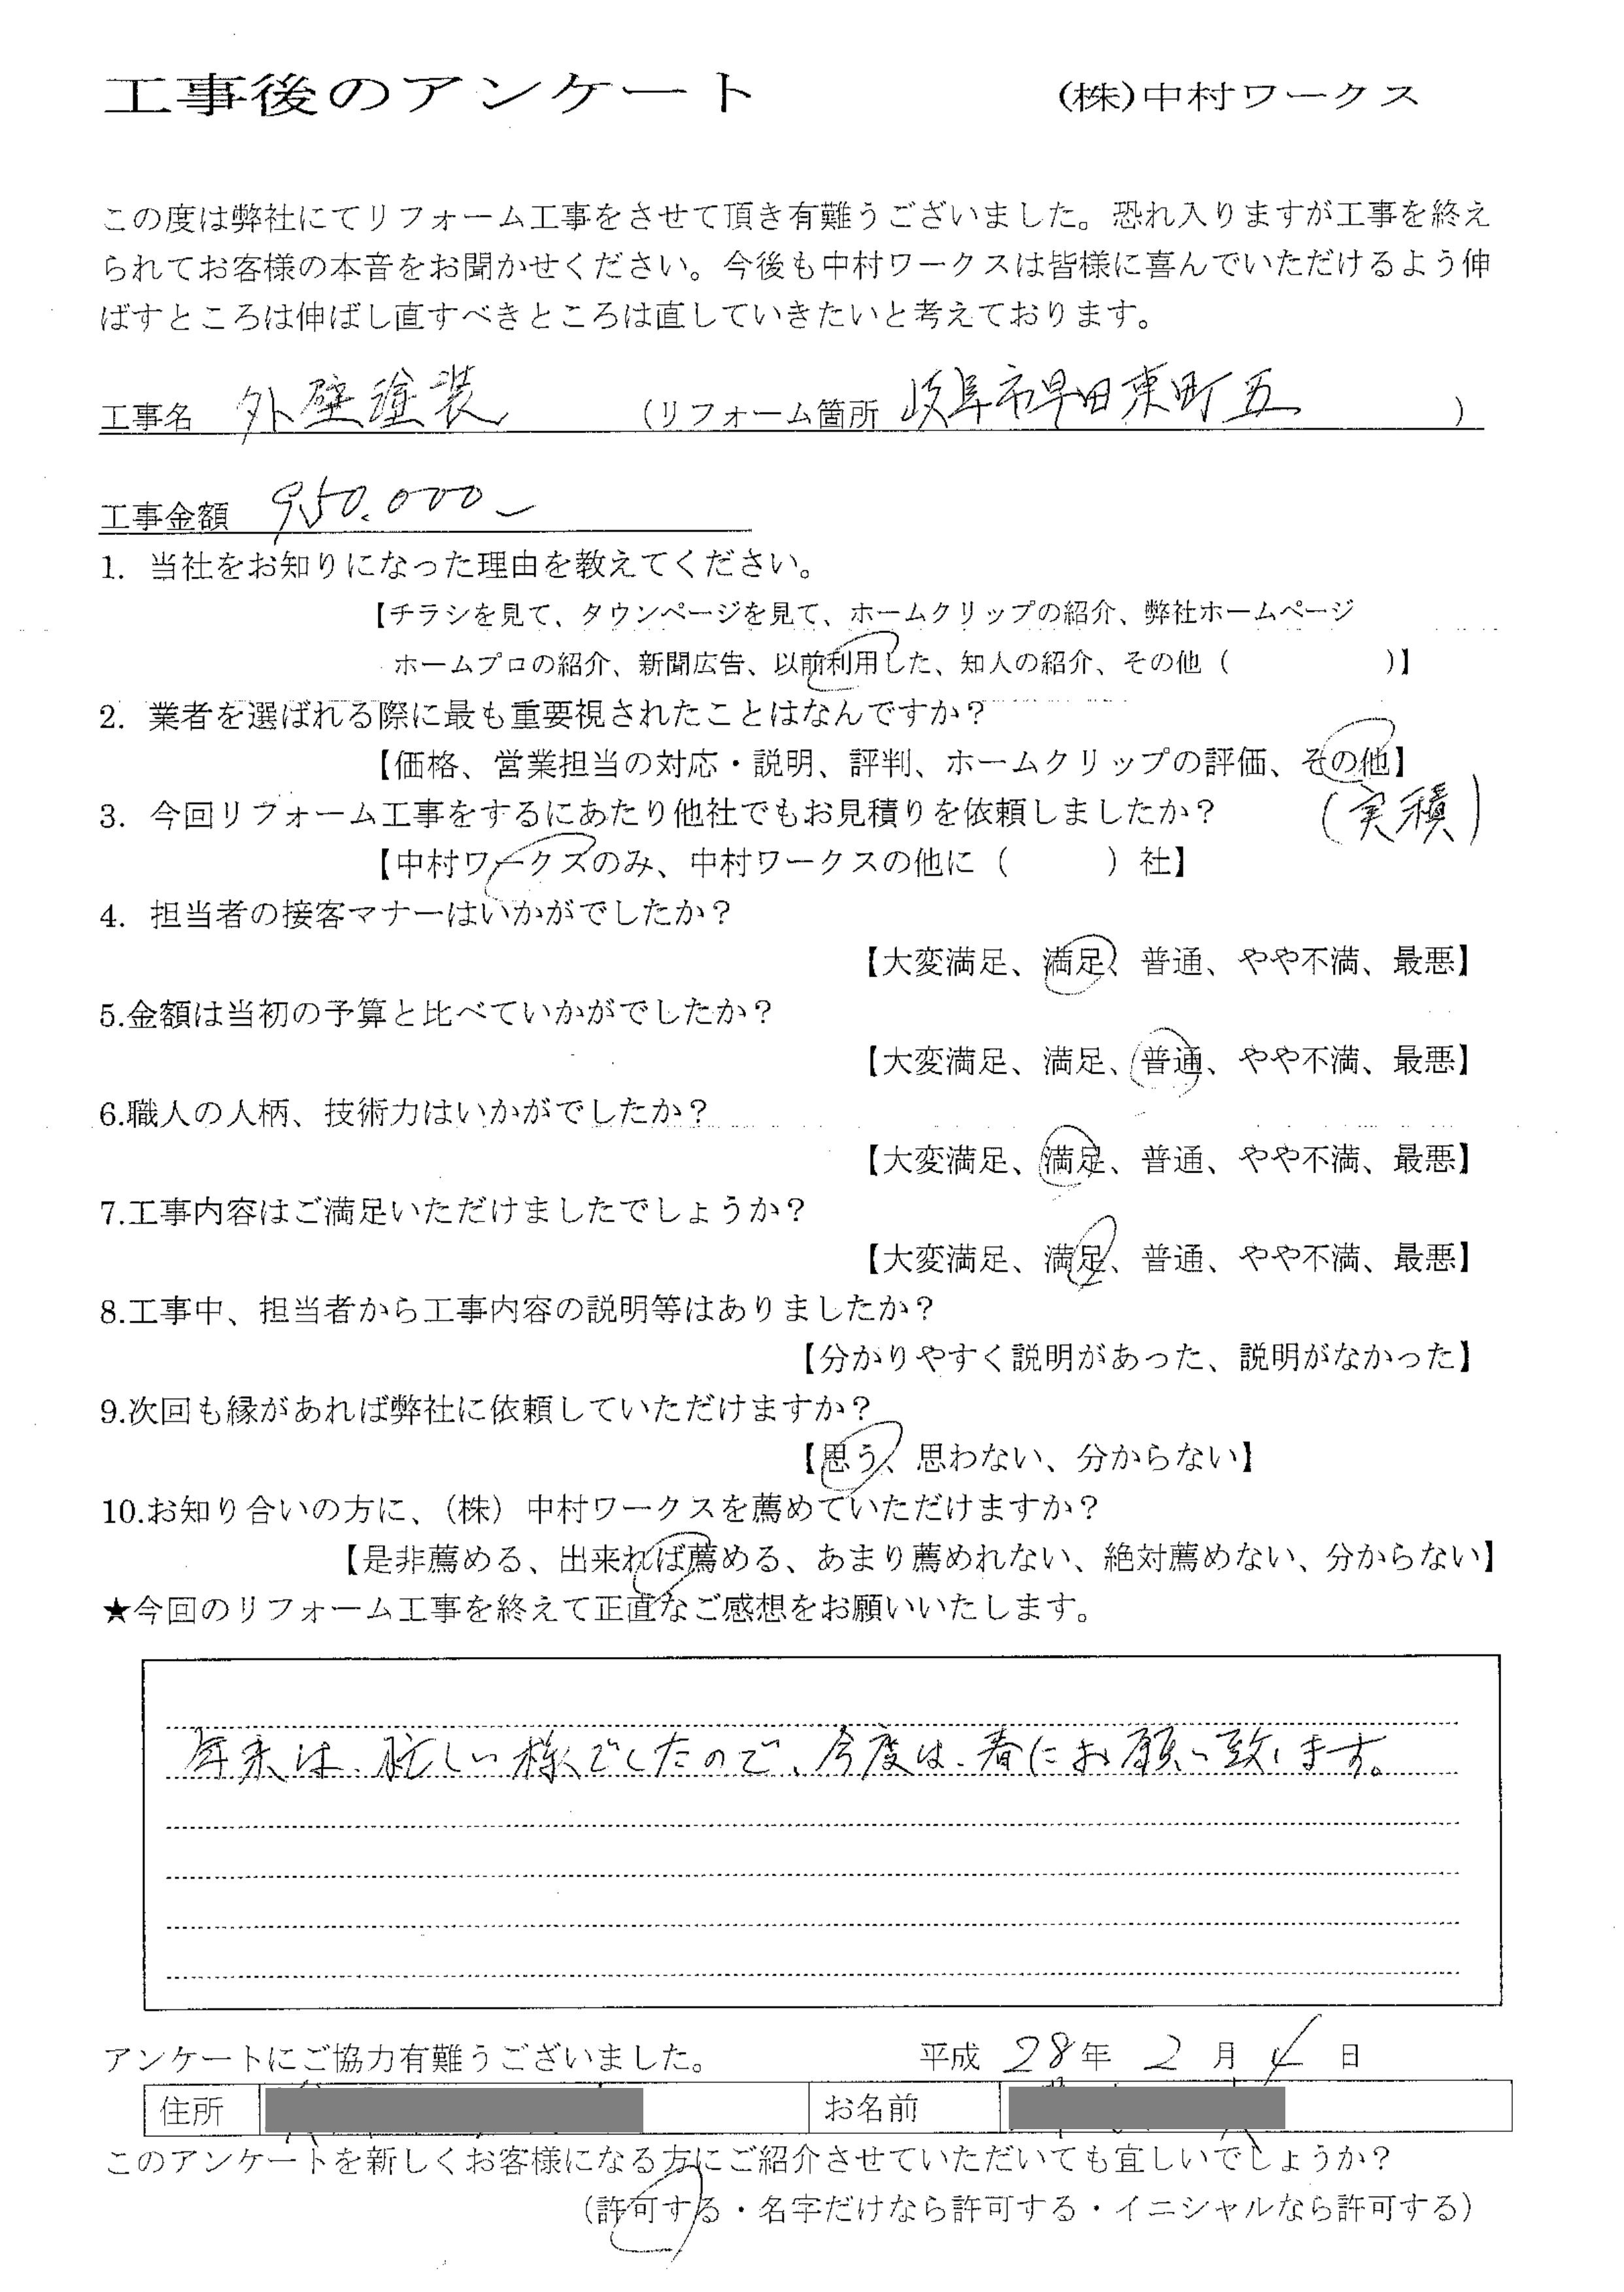 工事後のアンケート (株)中村ワークス
この度は弊社にてリフォーム工事をさせて頂き有難うございました。恐れ入りますが工事を終え
られてお客様の本音をお聞かせください。今後も中村ワークスは皆様に喜んでいただけるよう伸
ばすところは伸ばし直すべきところは直していきたいと考えております。
工事名 外壁塗装 (リフォーム箇所 岐阜市早田東町五 )
工事金額 950.000-
1. 当社をお知りになった理由を教えてください。
【チラシを見て、タウンページを見て、ホームクリップの紹介、弊社ホームページ
ホームプロの紹介、新聞広告、以前利用した、知人の紹介、その他 ( )】
2. 業者を選ばれる際に最も重要視されたことはなんですか?
【価格、営業担当の対応・説明、評判、ホームクリップの評価、その他】
3. 今回リフォーム工事をするにあたり他社でもお見積りを依頼しましたか? (実積)
【中村ワークスのみ、中村ワークスの他に ( ) 社】
4. 担当者の接客マナーはいかがでしたか?
【大変満足、満足、普通、やや不満、最悪】
5.金額は当初の予算と比べていかがでしたか?
【大変満足、満足、普通、やや不満、最悪】
6.職人の人柄、技術力はいかがでしたか?
【大変満足、満足、普通、やや不満、最悪】
7.工事内容はご満足いただけましたでしょうか?
【大変満足、満足、普通、やや不満、最悪】
8.工事中、担当者から工事内容の説明等はありましたか?
【分かりやすく説明があった、説明がなかった】
9.次回も縁があれば弊社に依頼していただけますか?
【思う、思わない、分からない】
10.お知り合いの方に、(株) 中村ワークスを薦めていただけますか?
【是非薦める、出来れば薦める、あまり薦めれない、絶対薦めない、分からない】
★今回のリフォーム工事を終えて正直なご感想をお願いいたします。
年末は、忙しい様でしたので、今度は、春にお願い致します。
アンケートにご協力有難うございました。 平成 28年 2月 4日
住所 お名前
このアンケートを新しくお客様になる方にご紹介させていただいても宜しいでしょうか?
(許可する・名字だけなら許可する・イニシャルなら許可する)